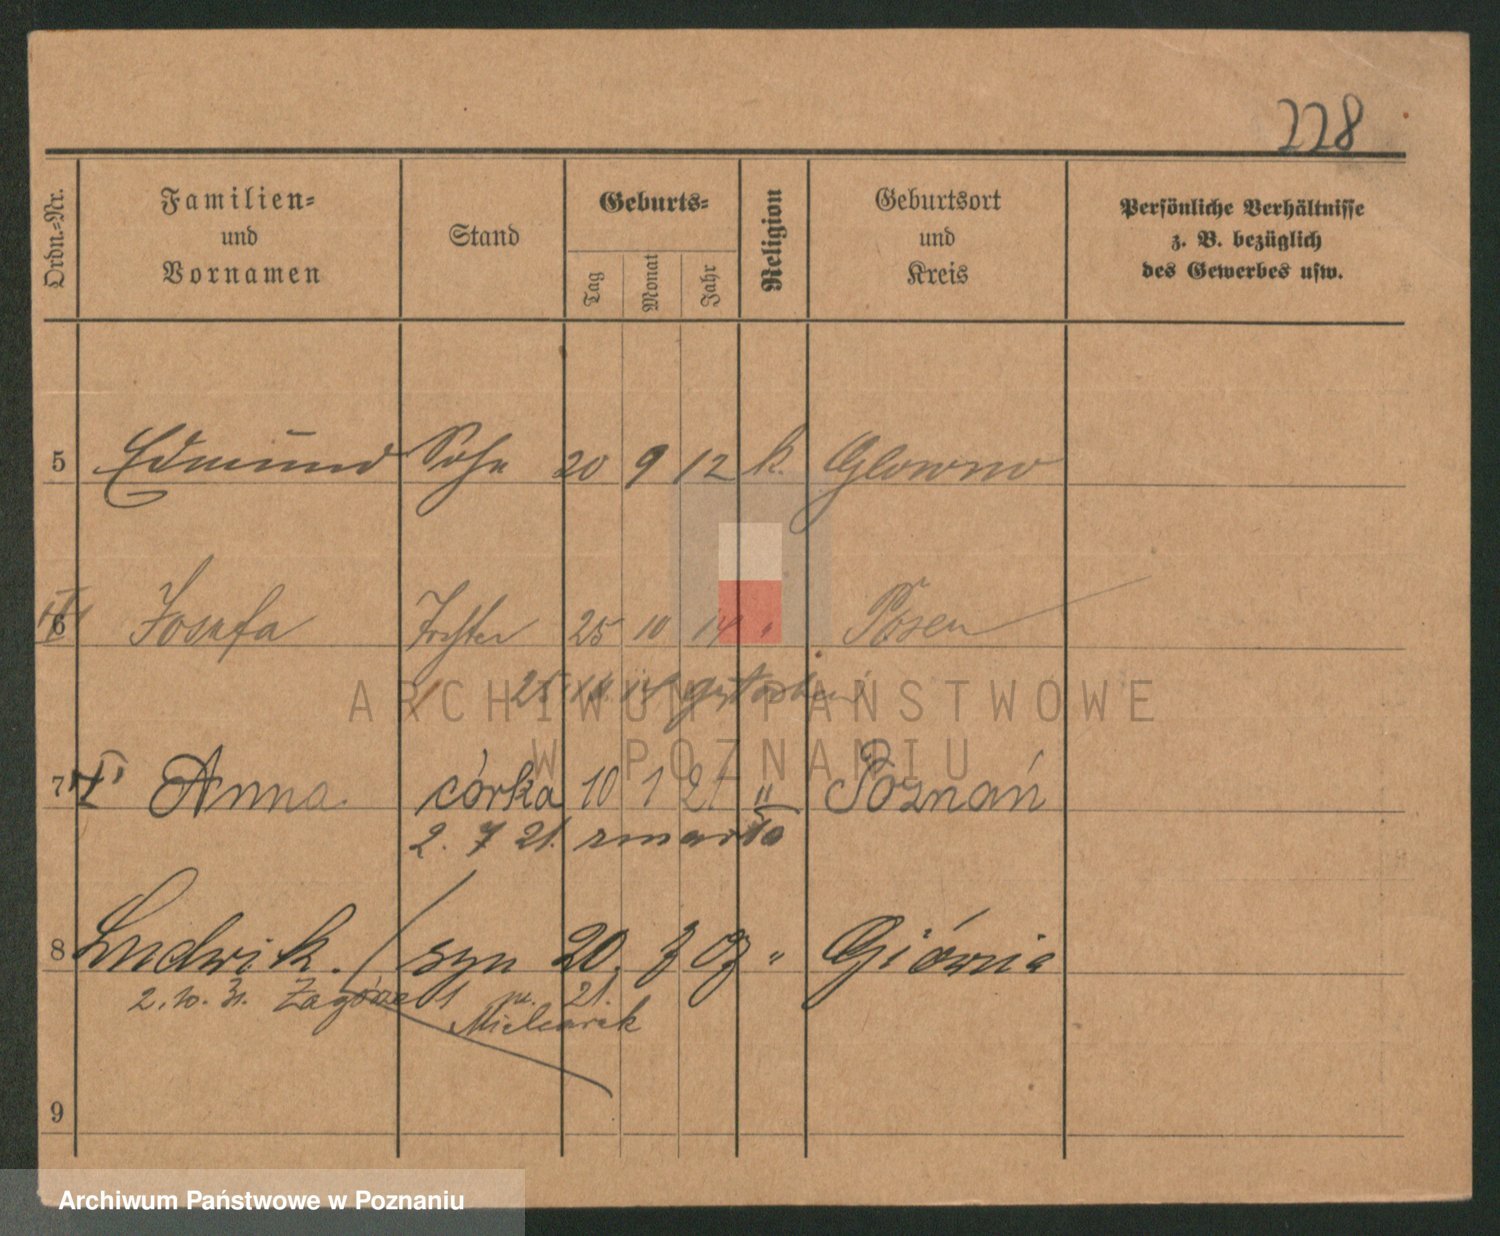 228
Ordn.-Nr.
Familien-
und
Vornamen
Stand
Geburts-
Tag
Monat
Jahr
Religion
Geburtsort
und
Kreis
Persönliche Verhältnisse
z. B. bezüglich
des Gewerbes usw.
5 Edmund Sohn 20 9 12 k. Glowno
6 Josefa Tochter 25 10 14 " Posen
25. 14 gestorben
7 Anna córka 10 1 21 " Poznań
2. 7 21. zmarła
8 Ludwik. syn 20. 7 07 " Główna
2. 10. 31. Zagórze 1 m. 21.
Mielcarek
9
ARCHIWUM PAŃSTWOWE
W POZNANIU
Archiwum Państwowe w Poznaniu